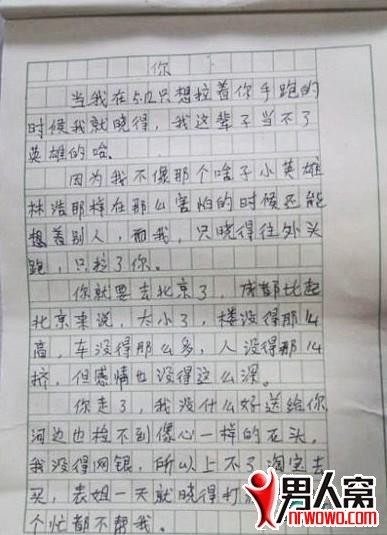 你
当我在5.12只想拉着你手跑的
时候我就晓得，我这辈子当不了
英雄的哈。
因为我不像那个啥子小英雄
林浩那样在那么害怕的时候还能
想着别人，而我，只晓得往外头
跑，只拉了你。
你就要去北京了，成都比起
北京来说，太小了，楼没得那么
高，车没得那么多，人没得那么
挤，但感情也没得这么深。
你走了，我没什么好送给你
河边也捡不到像心一样的石头，
我没得网银，所以上不了淘宝去
买，表姐一天就晓得打
个忙都不帮我。
男人窝
nrwowo.com